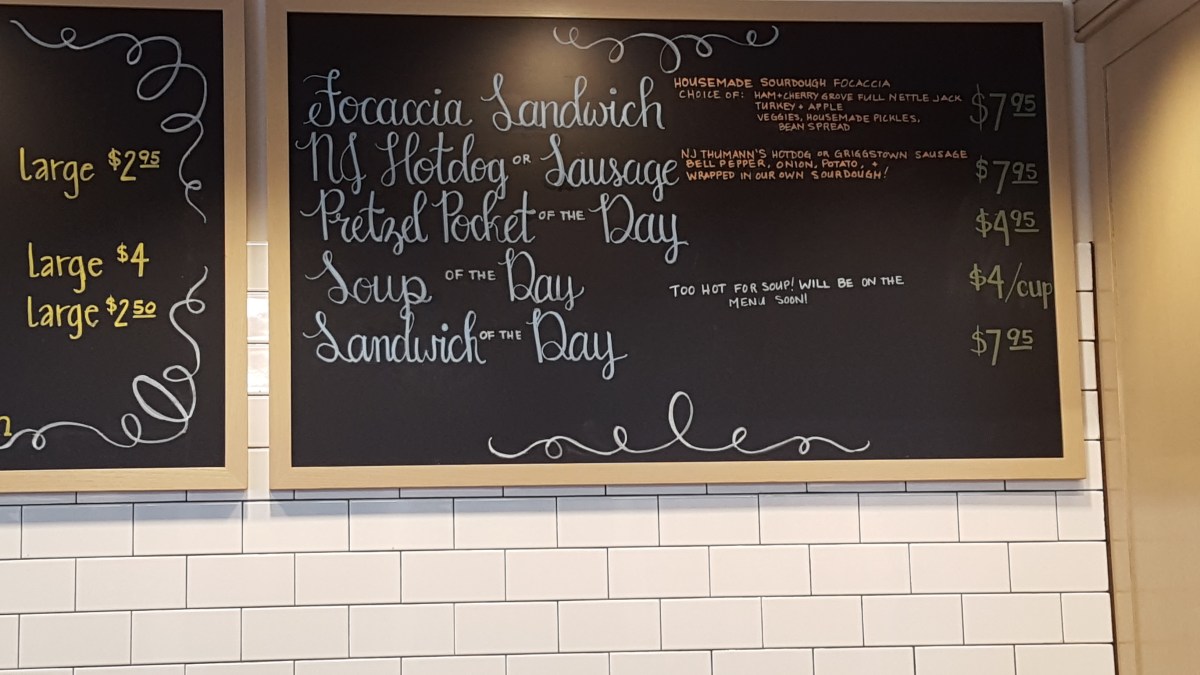 Large $2.95
Large $4
Large $2.50
Focaccia Sandwich
HOUSEMADE SOURDOUGH FOCACCIA
CHOICE OF: HAM+CHERRY GROVE FULL NETTLE JACK
TURKEY + APPLE
VEGGIES, HOUSEMADE PICKLES,
BEAN SPREAD
$7.95
NJ Hotdog OR Sausage
NJ THUMANN'S HOTDOG OR GRIGGSTOWN SAUSAGE
BELL PEPPER, ONION, POTATO, +
WRAPPED IN OUR OWN SOURDOUGH!
$7.95
Pretzel Pocket OF THE Day
$4.95
Soup OF THE Day
TOO HOT FOR SOUP! WILL BE ON THE
MENU SOON!
$4/cup
Sandwich OF THE Day
$7.95